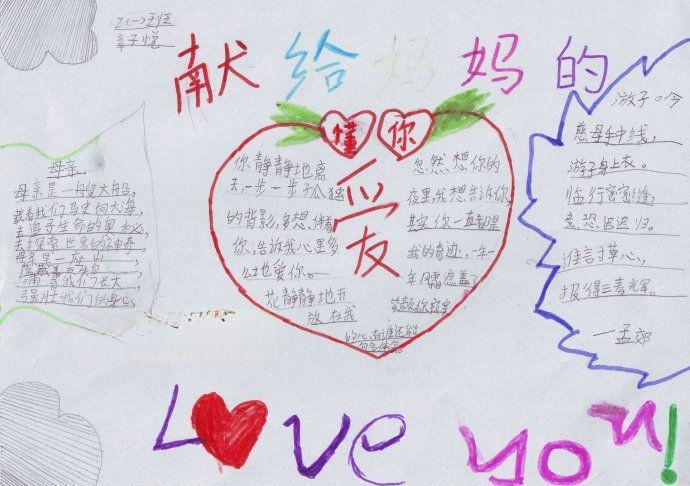 2(一)班
章子悦
献给妈妈的
懂你
爱
母亲
母亲是一艘大船,
载着我们驶向大海,
去追寻生命的奥秘,
去探索世界的神奇。
母亲是一座山
哺育我们长大
强壮我们的身心
你静静地离
去一步一步孤独
的背影,多想伴着
你,告诉我心里多
么地爱你。
花静静地开
放在我
忽然想你的
夜里,我想告诉你,
其实你一直都是
我的奇迹,一年一
年风霜遮盖了
笑颜你寂寞
的心有谁还能
游子吟
慈母手中线,
游子身上衣。
临行密密缝,
意恐迟迟归。
谁言寸草心,
报得三春光辉。
—孟郊
Love you!